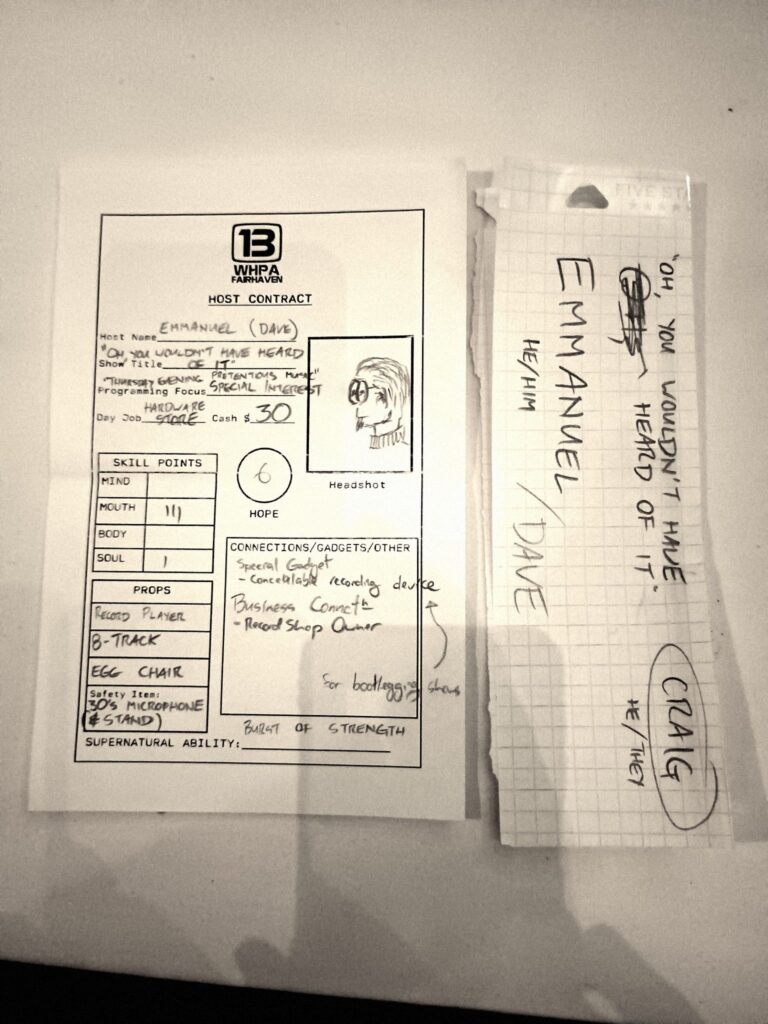 13
WHPA
FAIRHAVEN
HOST CONTRACT
Host Name EMMANUEL (DAVE)
"OH, YOU WOULDN'T HAVE HEARD
Show Title OF IT"
"THURSDAY EVENING PRETENTIOUS MUSIC"
Programming Focus SPECIAL INTEREST
Day Job HARDWARE STORE Cash $ 30
Headshot
SKILL POINTS
MIND
MOUTH III
BODY
SOUL I
6
HOPE
PROPS
RECORD PLAYER
8-TRACK
EGG CHAIR
Safety Item:
30'S MICROPHONE
(& STAND)
CONNECTIONS/GADGETS/OTHER
Special Gadget
- Concealable recording device
Business Connectn
- Record Shop Owner
for bootlegging shows
BURST OF STRENGTH
SUPERNATURAL ABILITY:
FIVE STA
"OH, YOU WOULDN'T HAVE
HEARD OF IT"
EMMANUEL /DAVE
HE/HIM
CRAIG
HE/THEY